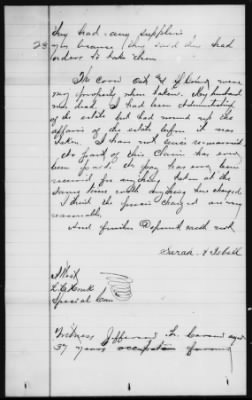 they had any supplies
23 yes because they said they had
orders to take them
The corn oats &c being were
my property when taken. My husband
was dead. I had been Administratrix
of the estate but had wound up the
affairs of the estate before it was
taken. I have not since remarried
No part of this Claim has ever
been paid no pay has ever been
received for anything taken at the
same time with anything here charged
I think the prices charged are very
reasonable.
And further Deponent saith not
Sarah A Isbell
Special Com
Witness Jefferson
37 years occupation farming